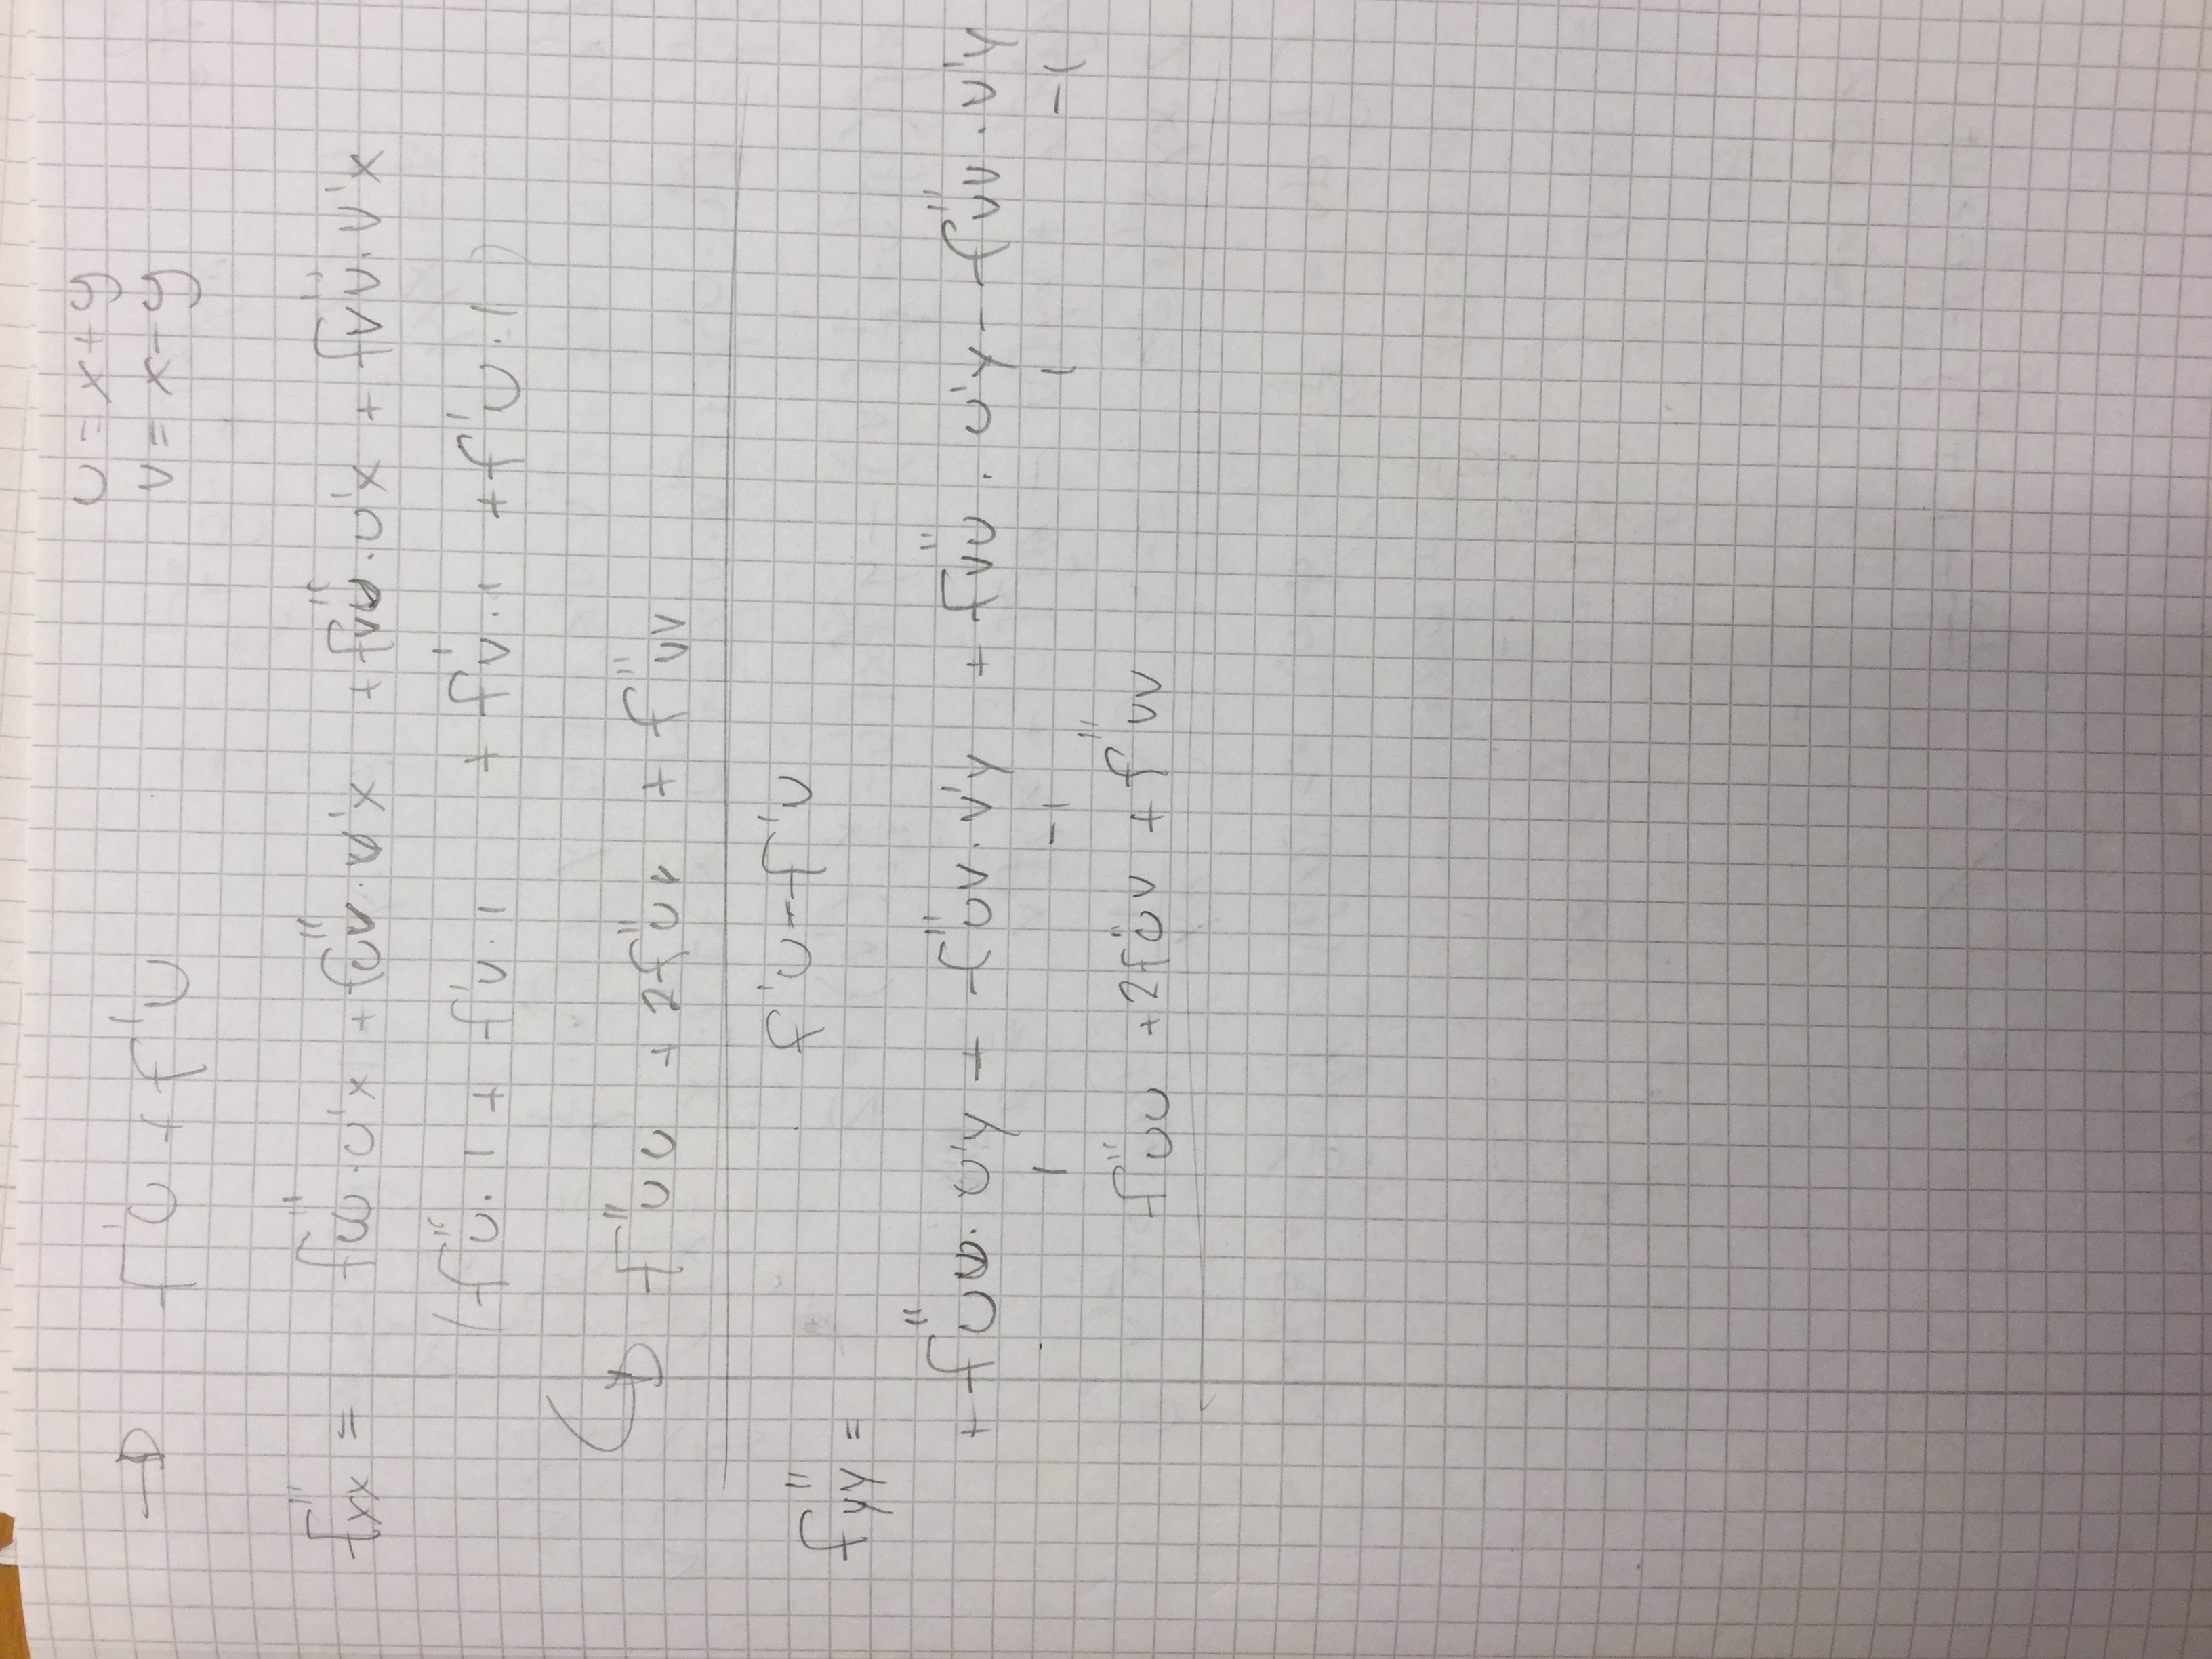 u = x+y
v = x-y
→ f'u + f'v
f''xx = f''uu · u'x + f''uv · v'x + f''vu · u'x + f''vv · v'x
( f''u · 1 + f'v · 1 + f'v · 1 + f'v · 1 )
→ f''uu + 2f''uv + f''vv
f'u - f'v
f''yy =
+ f''uu · u'y + f''uv · v'y + f''vu · u'y - f''vv · v'y
1 -1 1 -1
f''uu + 2f''uv + f''vv